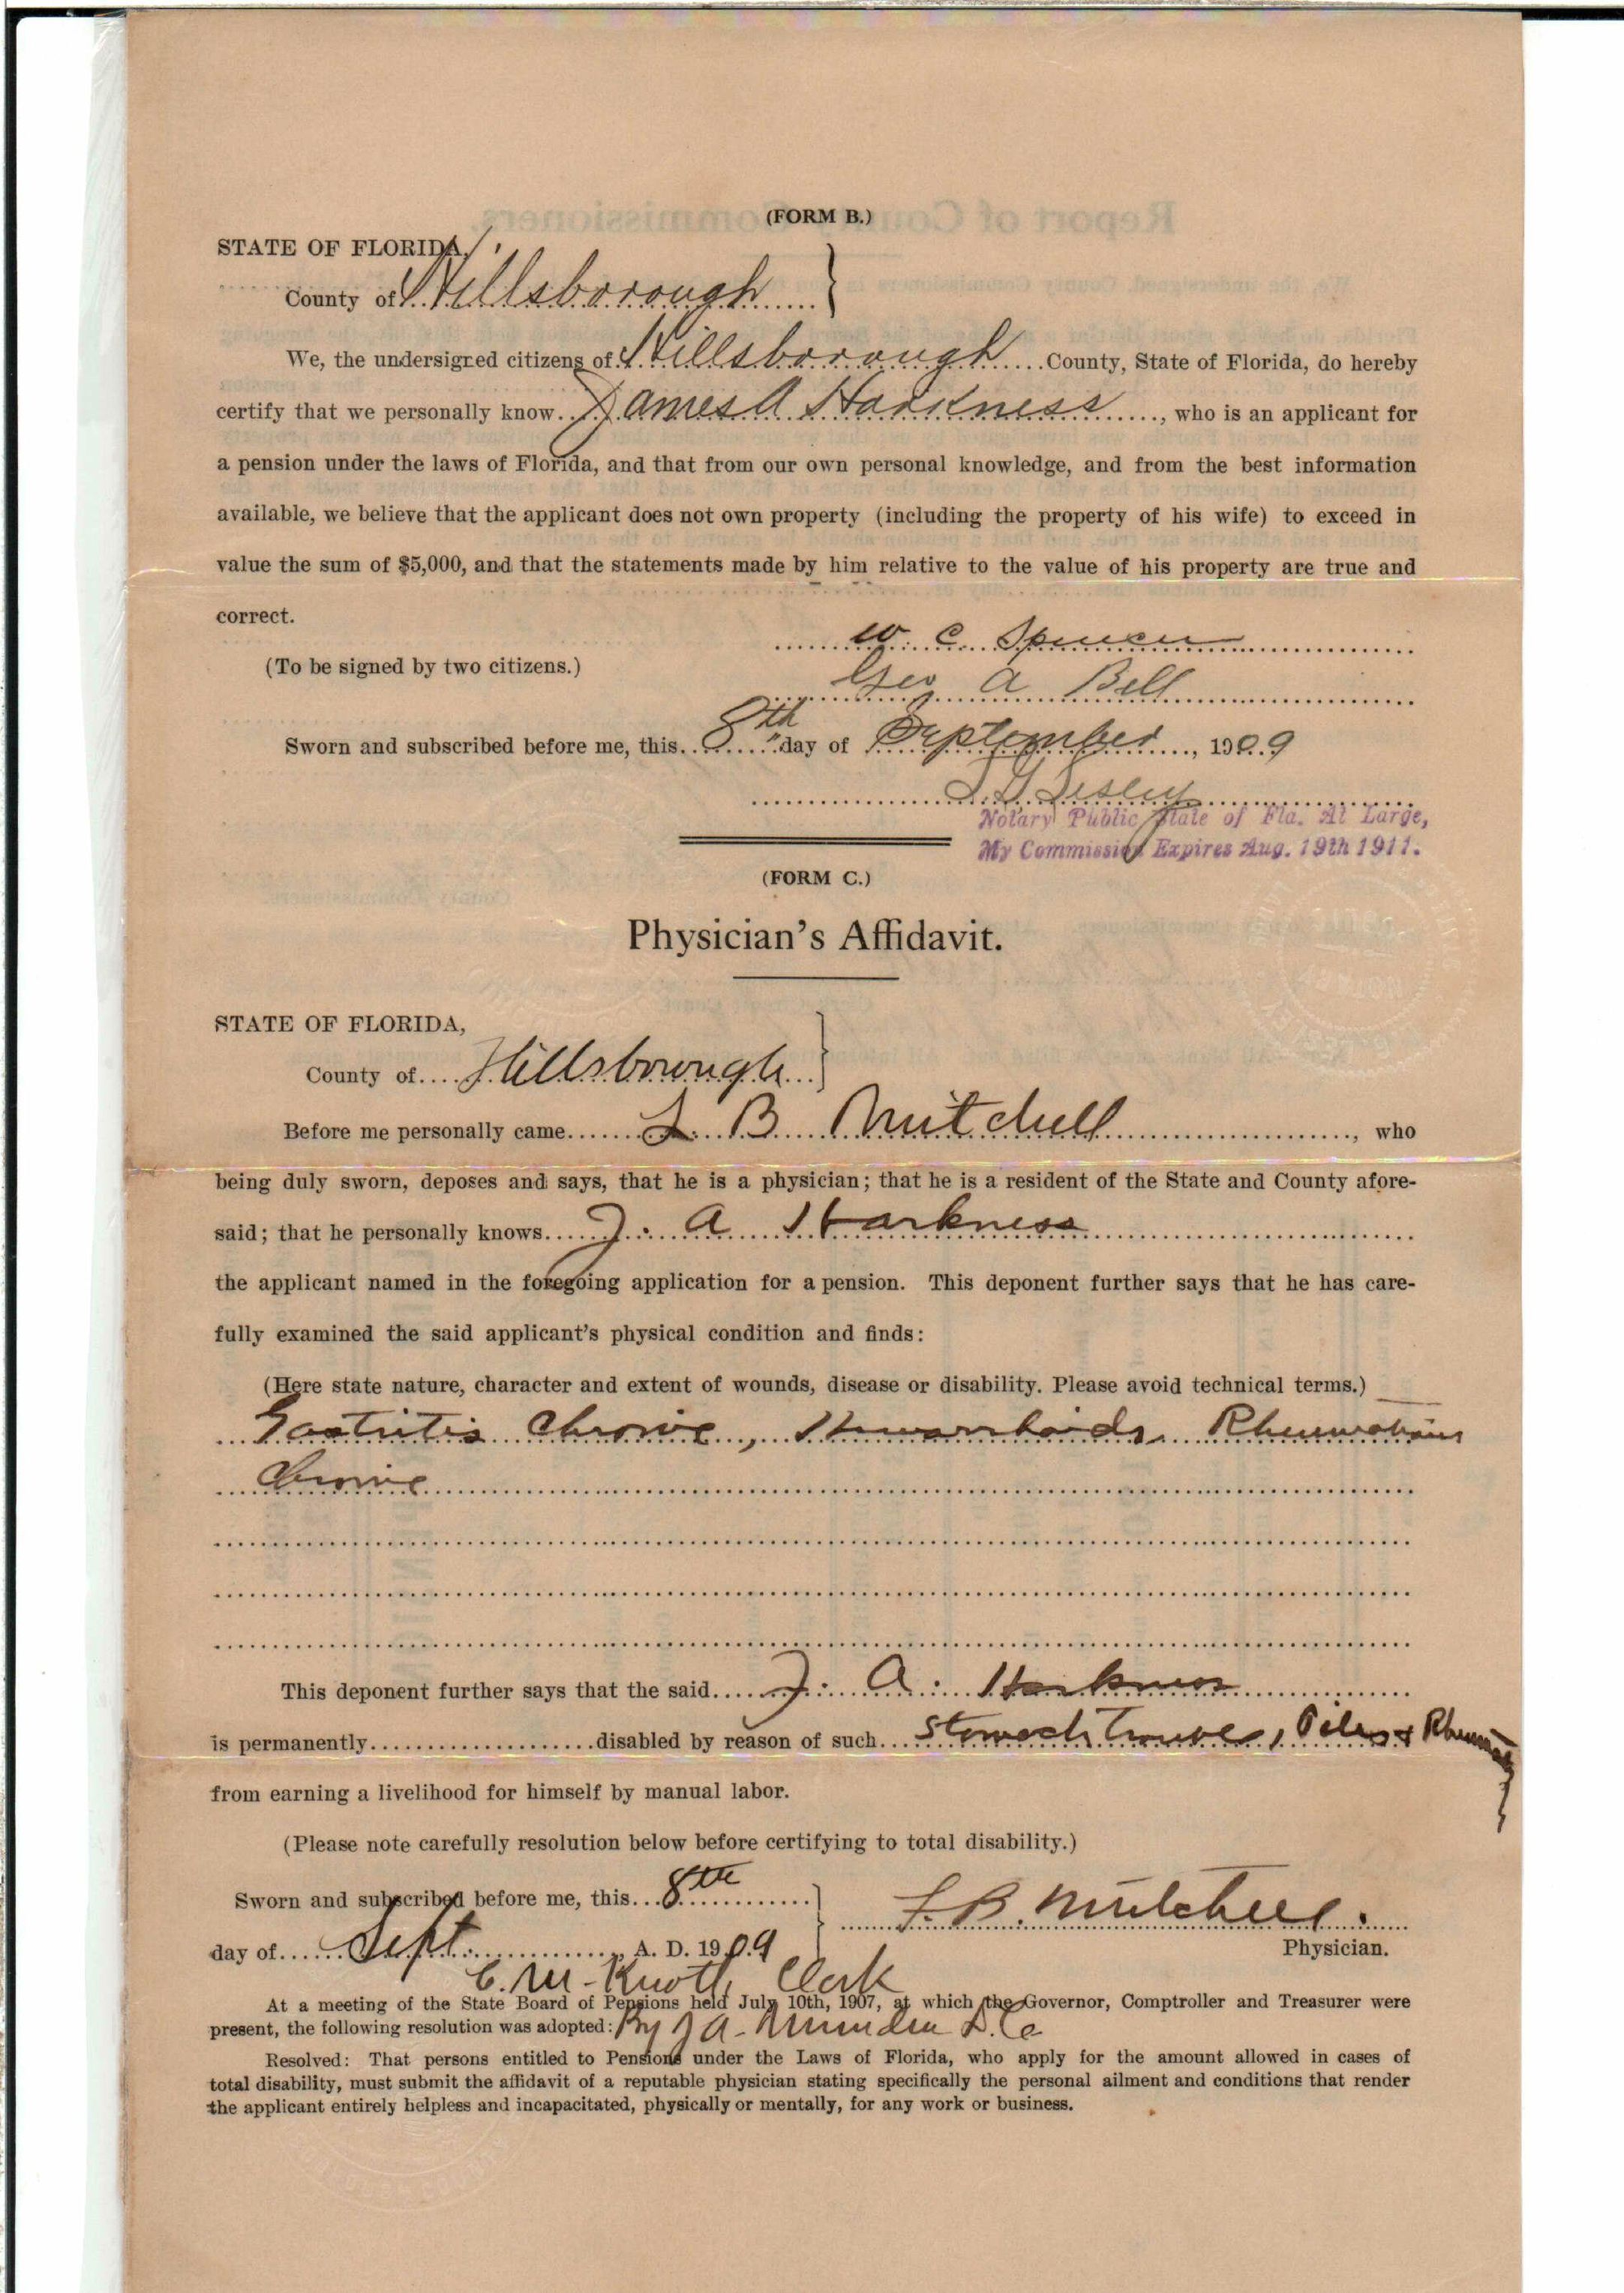 (FORM B.)
STATE OF FLORIDA,
County of Hillsborough
We, the undersigned citizens of Hillsborough County, State of Florida, do hereby
certify that we personally know James A Harkness, who is an applicant for
a pension under the laws of Florida, and that from our own personal knowledge, and from the best information
available, we believe that the applicant does not own property (including the property of his wife) to exceed in
value the sum of $5,000, and that the statements made by him relative to the value of his property are true and
correct.
W C Spencer
(To be signed by two citizens.)
Geo A Bell
Sworn and subscribed before me, this 8th day of September, 1909
Notary Public State of Fla. At Large,
My Commission Expires Aug. 19th 1911.
(FORM C.)
Physician's Affidavit.
STATE OF FLORIDA,
County of Hillsborough
Before me personally came L. B. Mitchell, who
being duly sworn, deposes and says, that he is a physician; that he is a resident of the State and County afore-
said; that he personally knows J. A Harkness
the applicant named in the foregoing application for a pension. This deponent further says that he has care-
fully examined the said applicant's physical condition and finds:
(Here state nature, character and extent of wounds, disease or disability. Please avoid technical terms.)
Gastritis Chronic, Hemorrhoids, Rheumatism
Chronic
This deponent further says that the said J. A. Harkness
is permanently disabled by reason of such Stomach Trouble, Piles &
from earning a livelihood for himself by manual labor.
(Please note carefully resolution below before certifying to total disability.)
Sworn and subscribed before me, this 8th
L. B. Mitchell.
day of Sept., A. D. 1909
Physician.
C. M. Knott, Clerk
At a meeting of the State Board of Pensions held July 10th, 1907, at which the Governor, Comptroller and Treasurer were
present, the following resolution was adopted: By J A. D.C.
Resolved: That persons entitled to Pensions under the Laws of Florida, who apply for the amount allowed in cases of
total disability, must submit the affidavit of a reputable physician stating specifically the personal ailment and conditions that render
the applicant entirely helpless and incapacitated, physically or mentally, for any work or business.